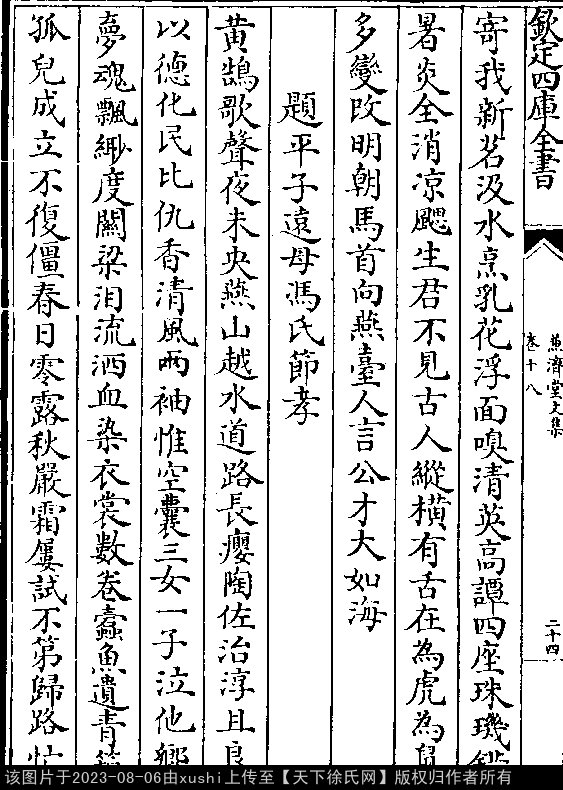 欽定四庫全書
兼濟堂文集
卷十八
二十四
寄我新茗汲水烹乳花浮面嗅清英高譚四座珠璣
暑炎全消凉颸生君不見古人縱橫有舌在為虎為鼠
多變改明朝馬首向燕臺人言公才大如海
題平子遠母馮氏節孝
黄鵠歌聲夜未央燕山越水道路長癭陶佐治淳且良
以德化民比仇香清風兩袖惟空囊三女一子泣他鄉
夢魂飄緲度關梁泪流洒血染衣裳數卷蠧魚遺青箱
孤兒成立不復僵春日零露秋嚴霜屢試不第歸路忙
该图片于2023-08-06由xushi上传至【天下徐氏网】版权归作者所有